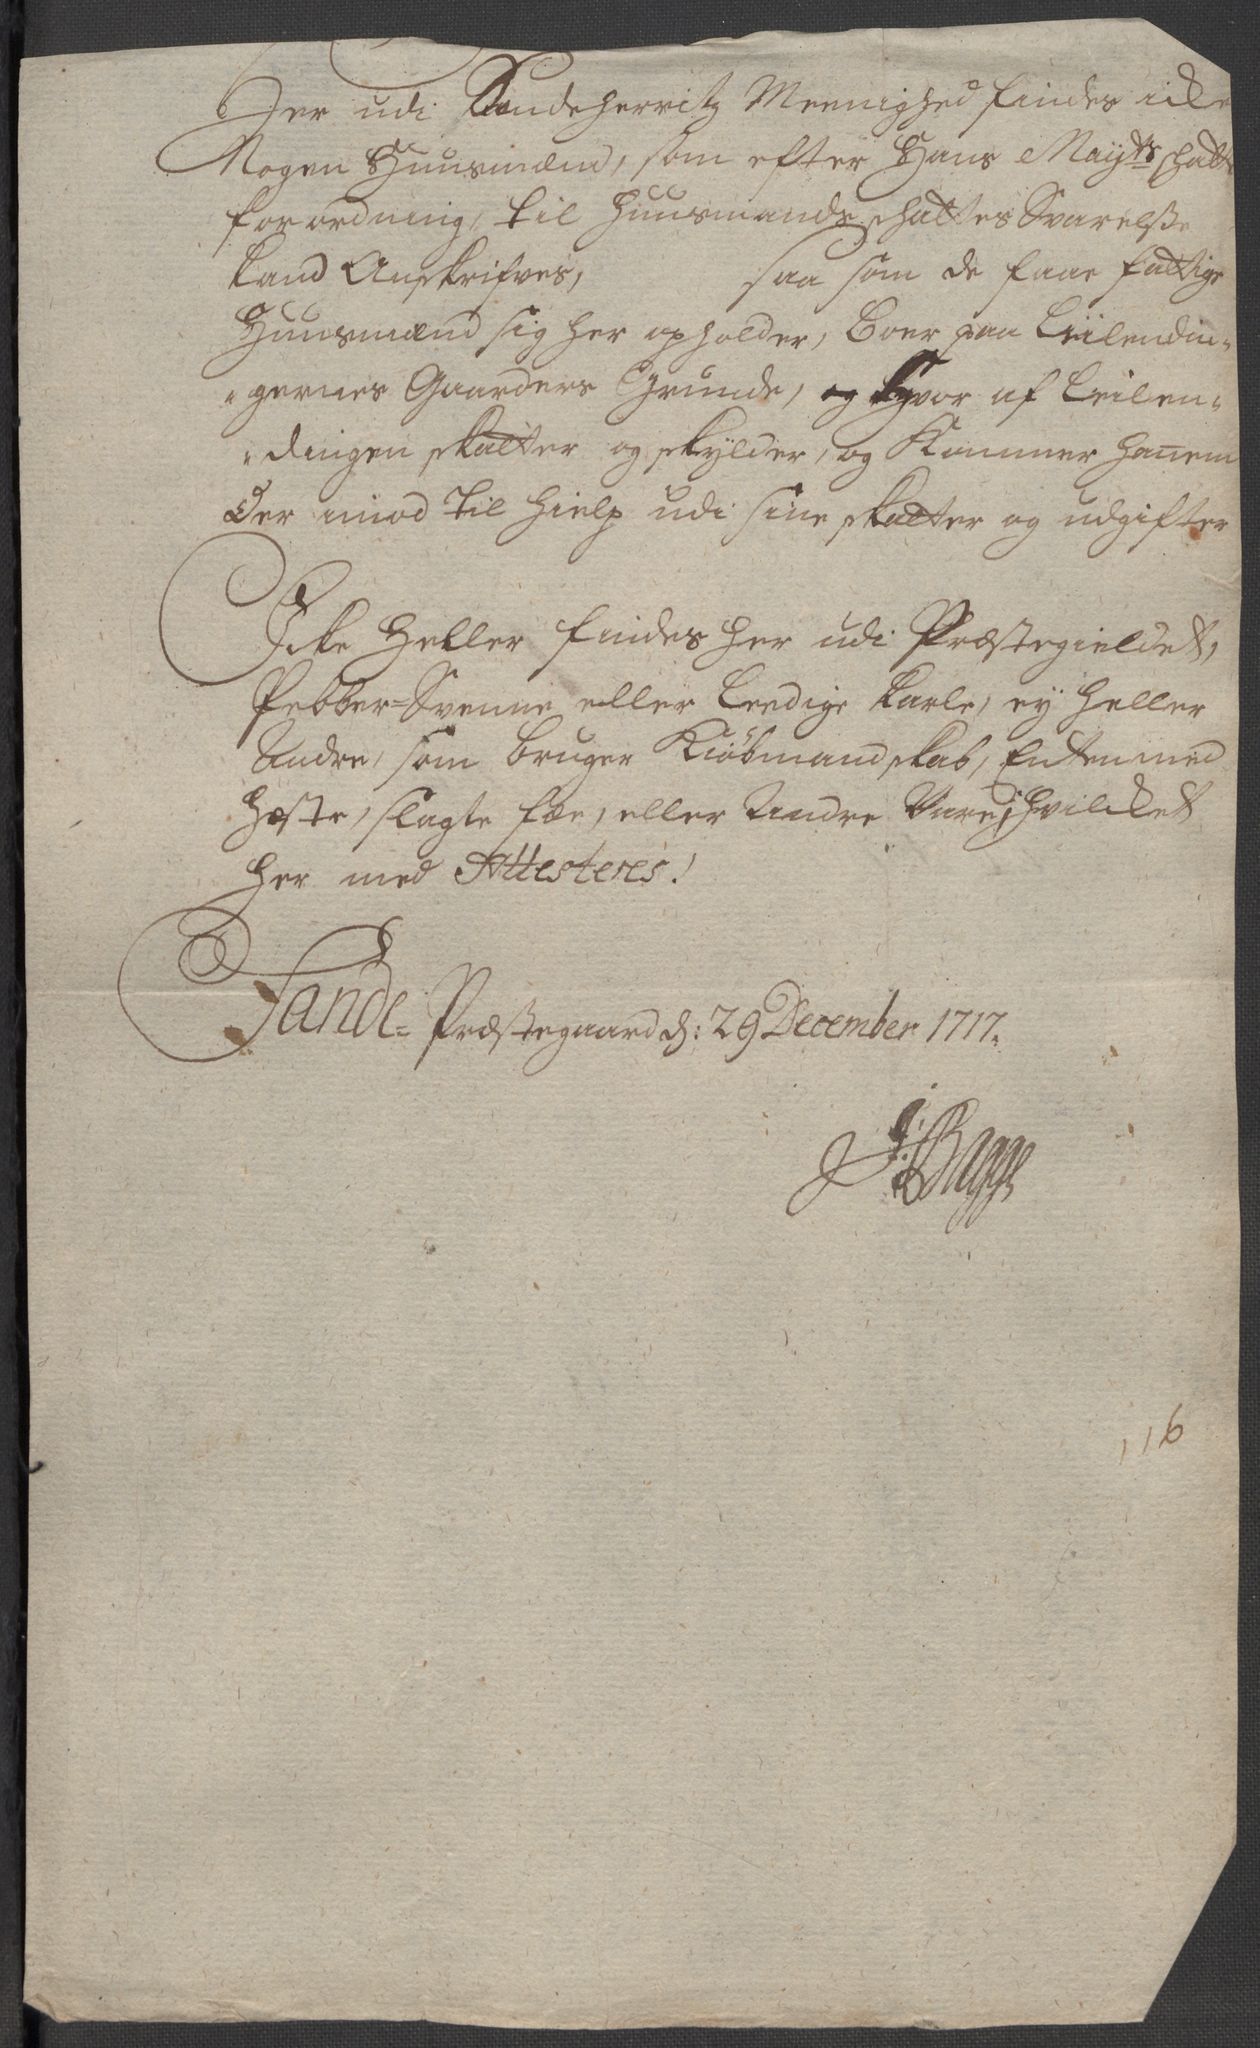 Her udi Sandeherritz Meenighed findes icke
Nogen Huusmænd, som efter Hans Mayts schatte
forordning, til Huusmands schattes Svarelsse
kand Anskrifves, saa som de faae fattige
Huusmænd sig her opholder, boer paa Leilendin-
-gernes Gaarders Grunde, og hvor af Leilen-
-dingen skatter og skylder, og kommer hannem
der imod til hielp udi sine skatter og udgifter
Icke heller findes her udi Præstegieldet,
Pebber-Svenne eller Leedige karle, ey heller
Andre, som bruger Kiøbmandskab, Enten med
Hæste, slagte fæe, eller Andre Vare, hvilcket
her med Attesteres!
Sande- Præstegaard d: 29 December 1717.
J: Bagge
116